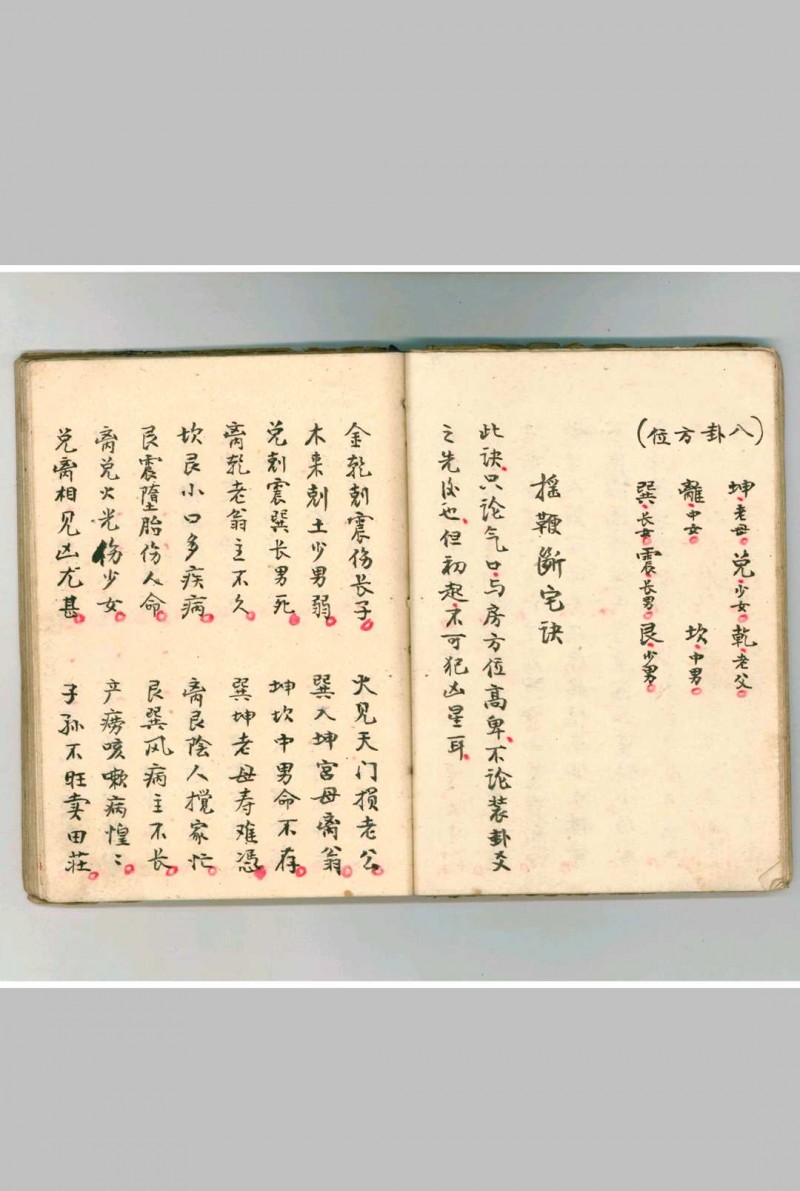 （八卦方位）
坤老母 兑少女 乾老父
離中女 坎中男
巽长女 震长男 艮少男
摇鞭断宅诀
此诀只论气口与房方位高卑不论装卦爻
之先後也但初起不可犯凶星耳
金乾刺震伤长子 火见天门损老公
木来刺土少男弱 巽入坤宫母离翁
兑刺震巽长男死 坤坎中男命不存
离乾老翁主不久 巽坤老母寿难憑
坎艮小口多疾病 离艮陰人搅家忙
艮震堕胎伤人命 艮巽风病主不长
离兑火光伤少女 产痨咳嗽病惶〻
兑离相见凶尤甚 子孙不旺卖田莊